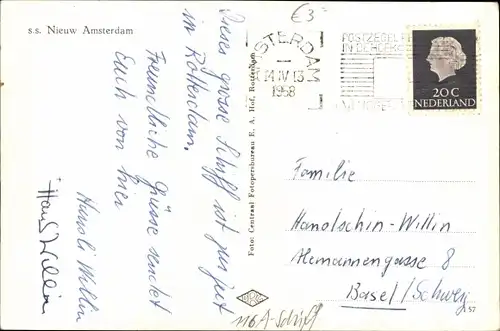 s.s. Nieuw Amsterdam
€3
STERDAM
14 IV 13
1958
POSTZEGEL
IN DE
20 C
NEDERLAND
Dieses grosse Schiff ist zur Zeit
in Rotterdam.
Freundliche Grüsse sendet
Euch von hier
Hansli Willin
Hans Willin
Foto: Centraal Fotopersbureau E. A. Hof, Rotterdam
Familie
Hanolschin-Willin
Alemannengasse 8
Basel/Schweiz
57
116 A-Schiff